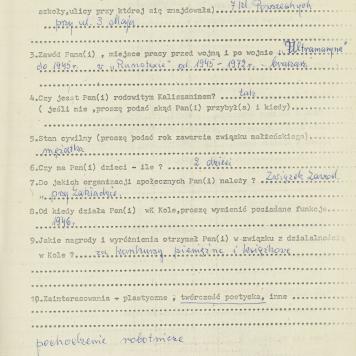 szkoły,ulicy przy której się znajdowała). 7 kl. Powszechnych
przy ul. 3 Maja
3.Zawód Pana(i) , miejsce pracy przed wojną i po wojnie "Ultramaryna"
do 1945r. w "Runotexie" od 1945 - 1972r. -
4.Czy jest Pan(i) rodowitym Kaliszaninem? tak
( jeśli nie ,proszę podać skąd Pan(i) przybył(a) i kiedy)
5.Stan cywilny (proszę podać rok zawarcia związku małżeńskiego)
mężatka
6.Czy ma Pan(i) dzieci - ile ? 2 dzieci
7.Do jakich organizacji społecznych Pan(i) należy ? Związek Zawod.
przy Zakładzie
8.Od kiedy działa Pan(i) wK Kole,proszę wymienić posiadane funkcje
1976r.
9.Jakie nagrody i wyróżnienia otrzymał Pan(i) w związku z działalnością
w Kole ? za konkursy pieniężne i książkowe
10.Zainteresowania - plastyczne , twórczość poetycka, inne
pochodzenie robotnicze